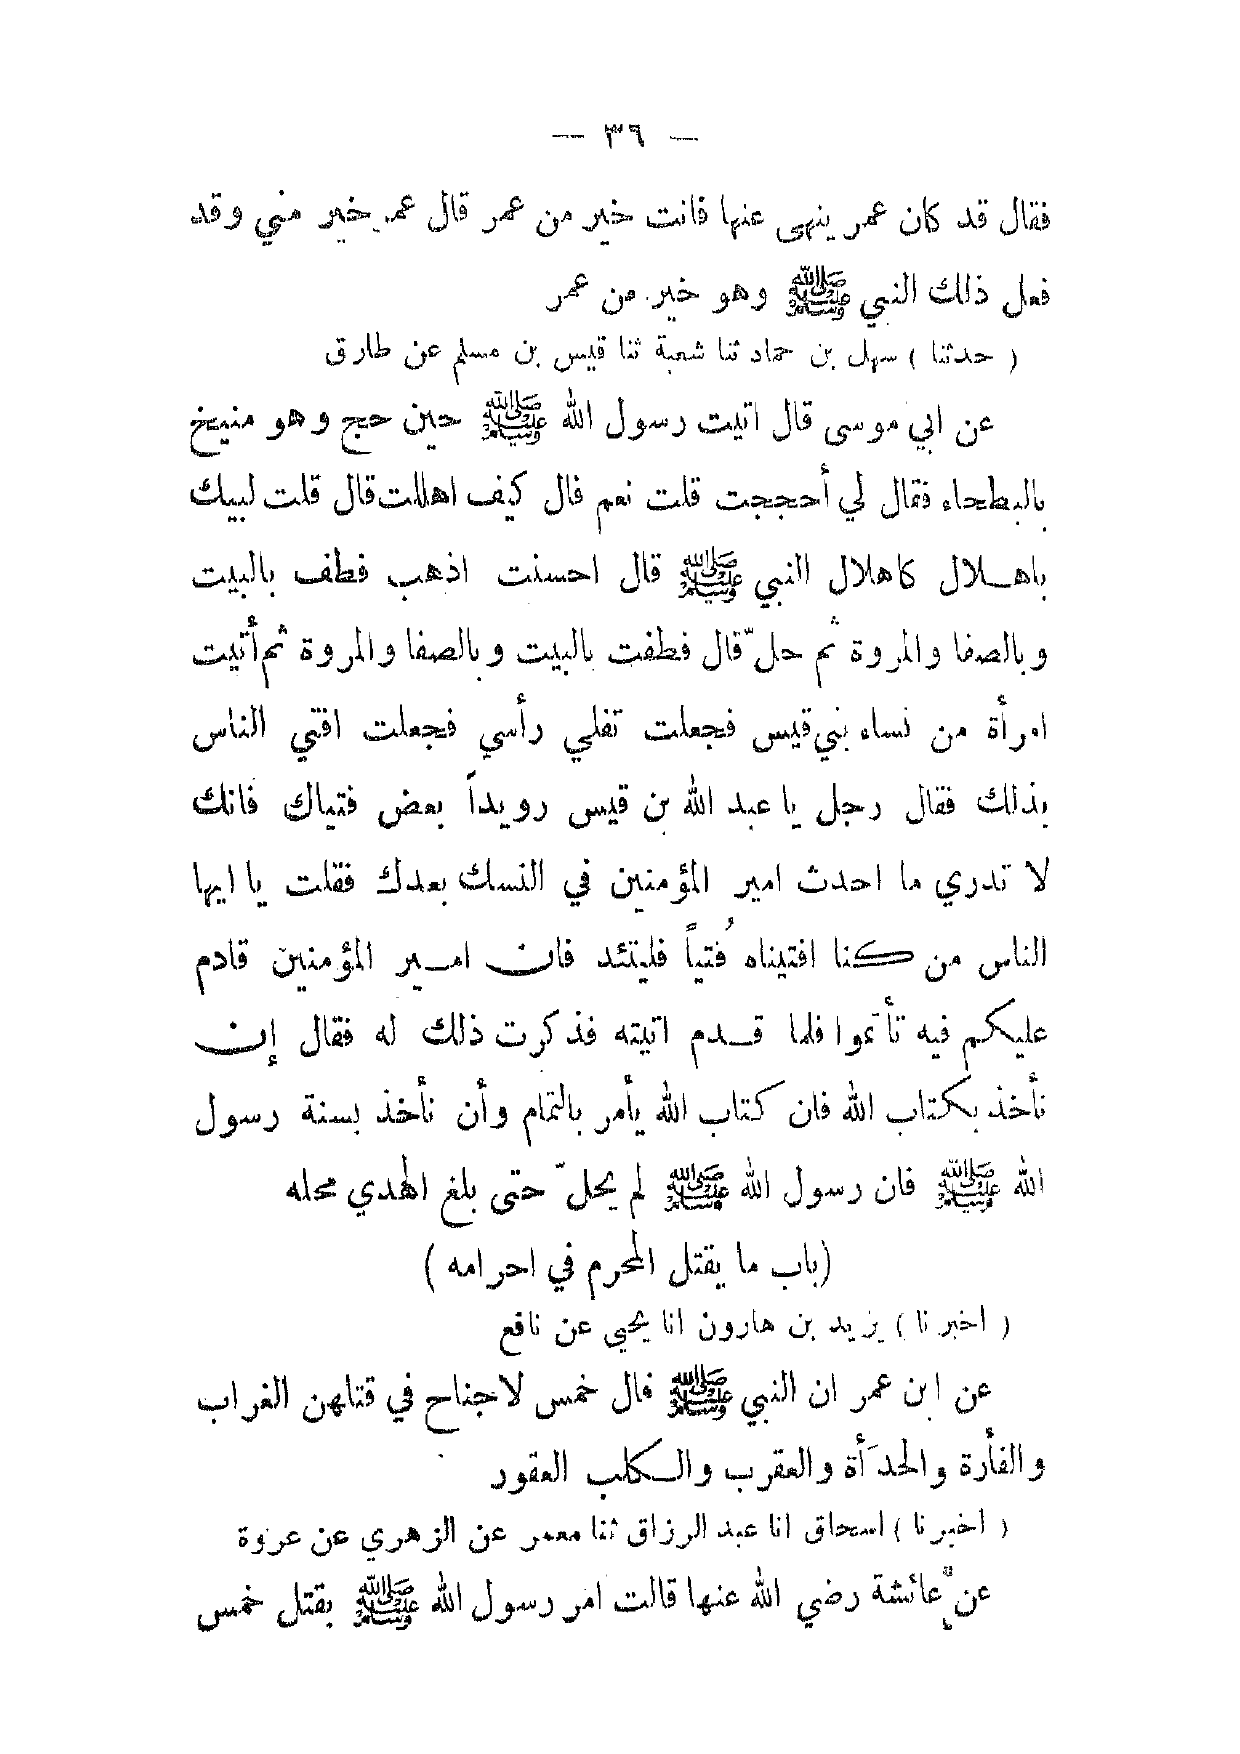 — ٣٦ —
فقال قد كان عمر ينهى عنها فانت خير من عمر قال عمر خير مني وقد
فعل ذلك النبي ﷺ وهو خير من عمر
( حدثنا ) سهل بن حماد ثنا شعبة ثنا قيس بن مسلم عن طارق
عن ابي موسى قال اتيت رسول الله ﷺ حين حج وهو منيخ
بالبطحاء فقال لي أحججت قلت نعم قال كيف اهللت قال قلت لبيك
باهـلال كاهلال النبي ﷺ قال احسنت اذهب فطف بالبيت
وبالصفا والمروة ثم حلّ قال فطفت بالبيت وبالصفا والمروة ثم أتيت
امرأة من نساء بني قيس فجعلت تفلي رأسي فجعلت افتي الناس
بذلك فقال رجل يا عبد الله بن قيس رويداً بعض فتياك فانك
لا تدري ما احدث امير المؤمنين في النسك بعدك فقلت يا ايها
الناس من كنا افتيناه فُتياً فليتئد فان امـير المؤمنين قادم
عليكم فيه تأتموا فلما قـدم اتيته فذكرت ذلك له فقال إن
نأخذ بكتاب الله فان كتاب الله يأمر بالتمام وأن نأخذ بسنة رسول
الله ﷺ فان رسول الله ﷺ لم يحلّ حتى بلغ الهدي محله
(باب ما يقتل المحرم في احرامه )
( اخبرنا ) يزيد بن هارون انا يحيى عن نافع
عن ابن عمر ان النبي ﷺ قال خمس لا جناح في قتلهن الغراب
والفأرة والحدَأة والعقرب والكلب العقور
( اخبرنا ) اسحاق انا عبد الرزاق ثنا معمر عن الزهري عن عروة
عن عائشة رضي الله عنها قالت امر رسول الله ﷺ بقتل خمس